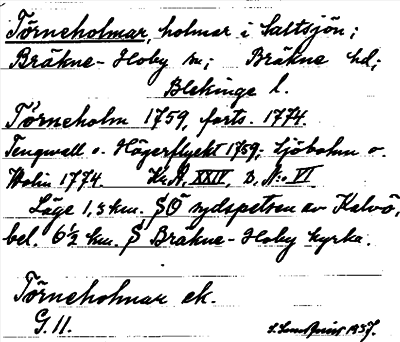 Törneholmar, holmar i Saltsjön;
Bräkne-Hoby sn; Bräkne hd;
Blekinge l.
Törneholm 1759, forts. 1774.
Tengwall o. Högerflyckt 1759; Sjöbohm o.
Wolin 1774. Kr. A. XXIV, B. No VI.
Läge 1,3 km. SÖ sydspetsen av Kalvö,
bel. 6½ km. S Bräkne-Hoby kyrka.
Törneholmar ek.
G. 11.
1957.